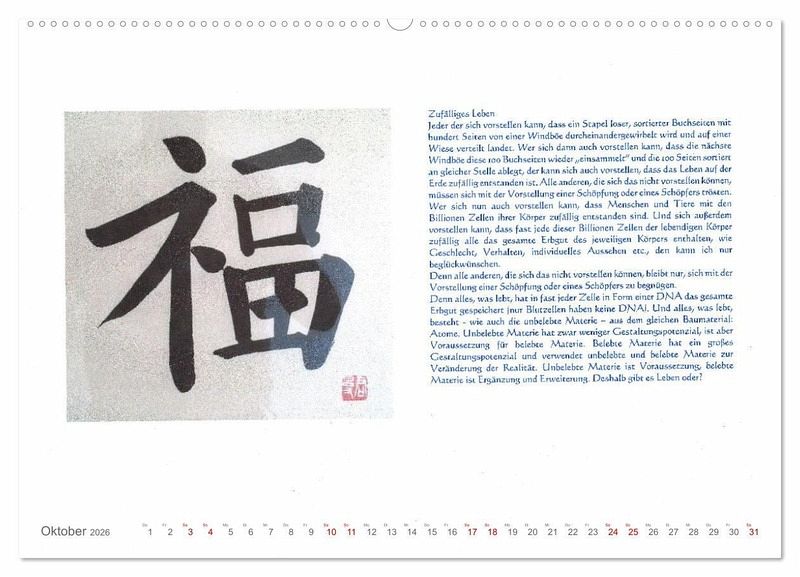 福
Zufälliges Leben
Jeder der sich vorstellen kann, dass ein Stapel loser, sortierter Buchseiten mit
hundert Seiten von einer Windböe durcheinandergewirbelt wird und auf einer
Wiese verteilt landet. Wer sich dann auch vorstellen kann, dass die nächste
Windböe diese 100 Buchseiten wieder „einsammelt" und die 100 Seiten sortiert
an gleicher Stelle ablegt, der kann sich auch vorstellen, dass das Leben auf der
Erde zufällig entstanden ist. Alle anderen, die sich das nicht vorstellen können,
müssen sich mit der Vorstellung einer Schöpfung oder eines Schöpfers trösten.
Wer sich nun auch vorstellen kann, dass Menschen und Tiere mit den
Billionen Zellen ihrer Körper zufällig entstanden sind. Und sich außerdem
vorstellen kann, dass fast jede dieser Billionen Zellen der lebendigen Körper
zufällig alle das gesamte Erbgut des jeweiligen Körpers enthalten, wie
Geschlecht, Verhalten, individuelles Aussehen etc., den kann ich nur
beglückwünschen.
Denn alle anderen, die sich das nicht vorstellen können, bleibt nur, sich mit der
Vorstellung einer Schöpfung oder eines Schöpfers zu begnügen.
Denn alles, was lebt, hat in fast jeder Zelle in Form einer DNA das gesamte
Erbgut gespeichert (nur Blutzellen haben keine DNA). Und alles, was lebt,
besteht - wie auch die unbelebte Materie – aus dem gleichen Baumaterial:
Atome. Unbelebte Materie hat zwar weniger Gestaltungspotenzial, ist aber
Voraussetzung für belebte Materie. Belebte Materie hat ein großes
Gestaltungspotenzial und verwendet unbelebte und belebte Materie zur
Veränderung der Realität. Unbelebte Materie ist Voraussetzung, belebte
Materie ist Ergänzung und Erweiterung. Deshalb gibt es Leben oder?
Oktober 2026
Do Fr Sa So Mo Di Mi Do Fr Sa So Mo Di Mi Do Fr Sa So Mo Di Mi Do Fr Sa So Mo Di Mi Do Fr Sa
1 2 3 4 5 6 7 8 9 10 11 12 13 14 15 16 17 18 19 20 21 22 23 24 25 26 27 28 29 30 31